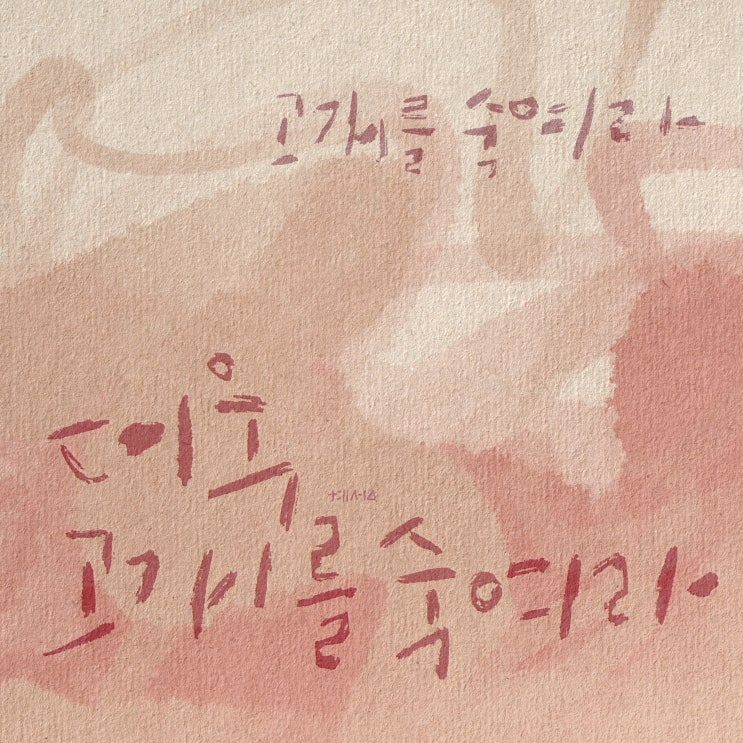 고개를 숙여라
더욱
고개를 숙여라